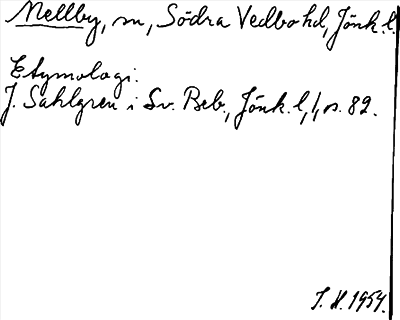 Mellby, sn, Södra Vedbo hd, Jönk. l.
Etymologi:
J. Sahlgren i Sv. Beb., Jönk. l, 1, s. 82.
I. H. 1954.